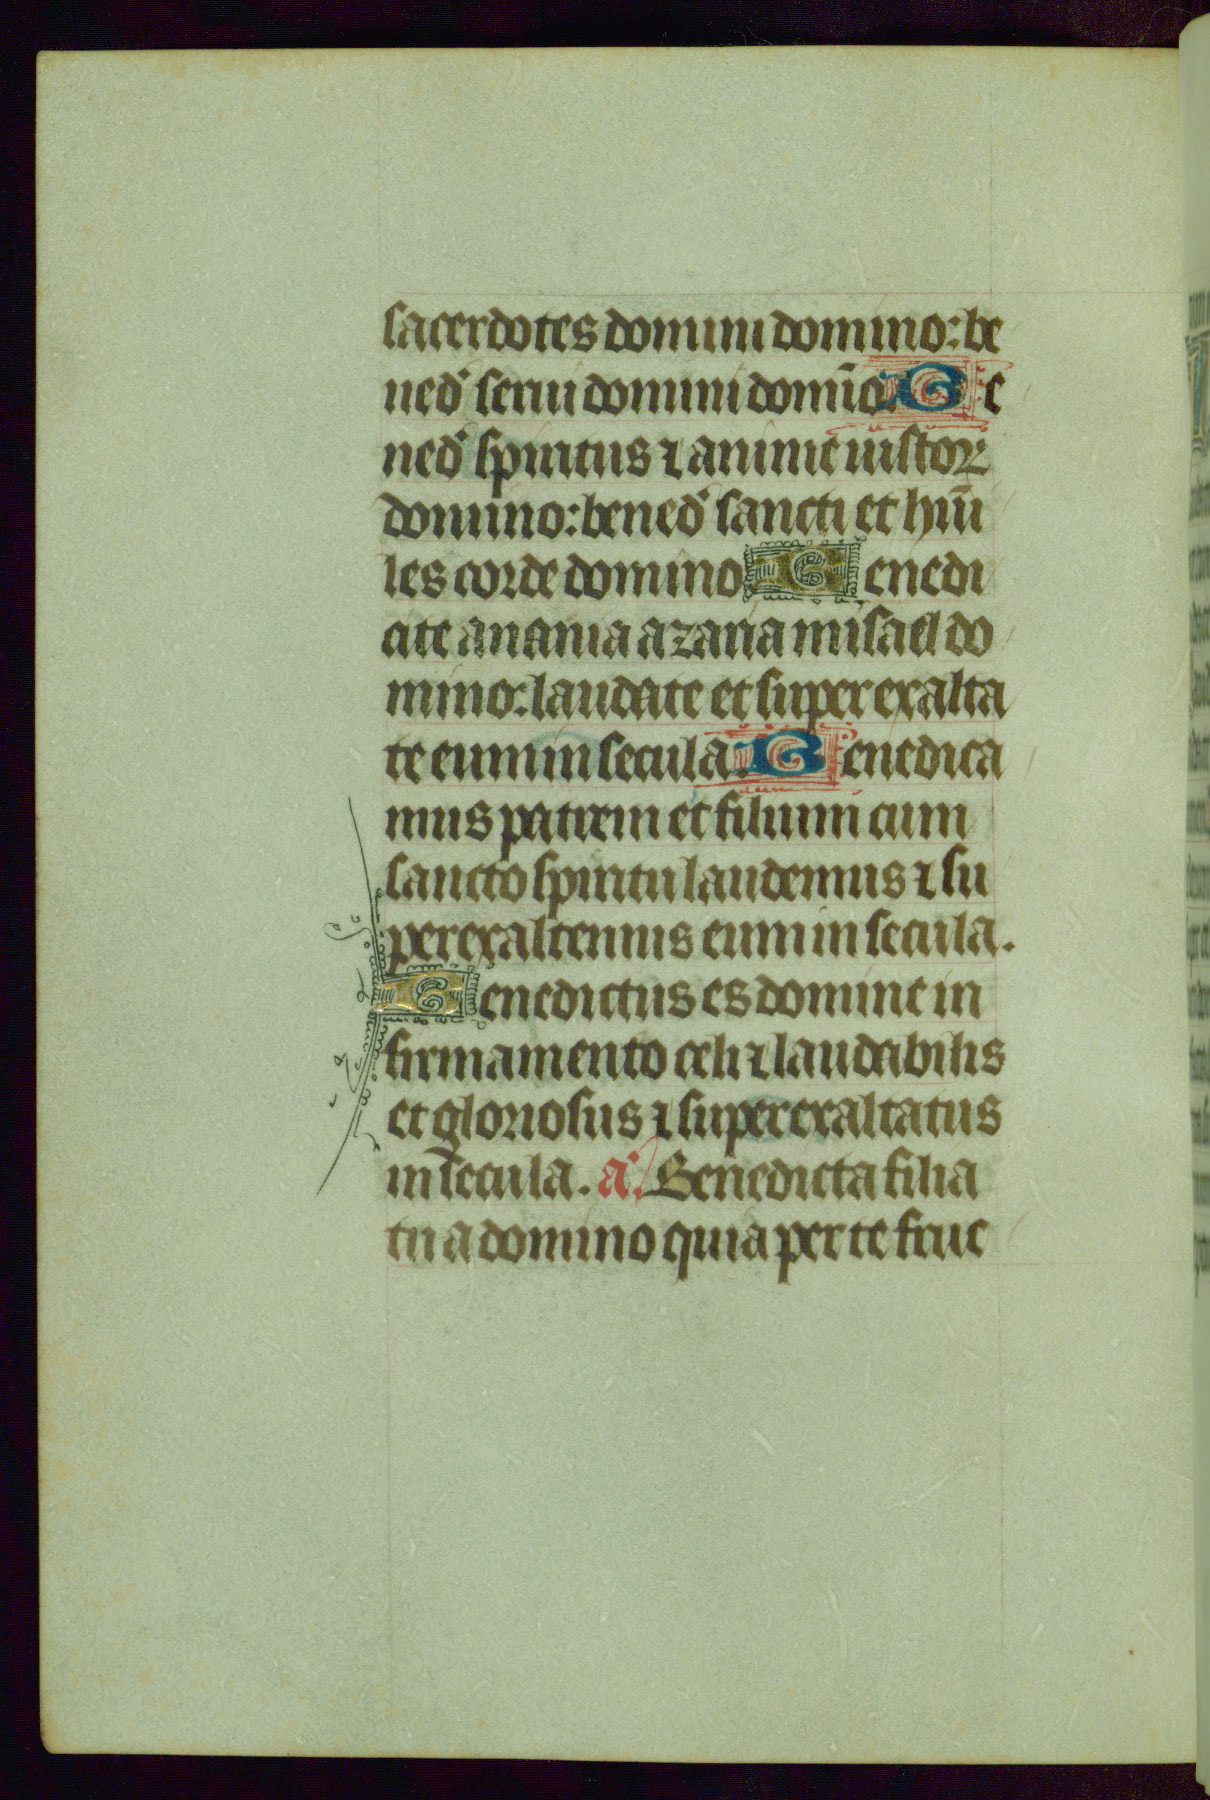 sacerdotes domini domino: be
ned̾ serui domini domīo. Be
ned̾ spiritus ⁊ anime iustoꝝ
domino: bened̾ sancti et hūi
les corde domino Benedi
cite anania azaria misael do
mino: laudate et superexalta
te eum in secula. Benedica
mus patrem et filium cum
sancto spiritu laudemus ⁊ su
perexaltemus eum in secula.
Benedictus es domine in
firmamento celi ⁊ laudabilis
et gloriosus ⁊ superexaltatus
in secula. a. Benedicta filia
tu a domino quia per te fruc